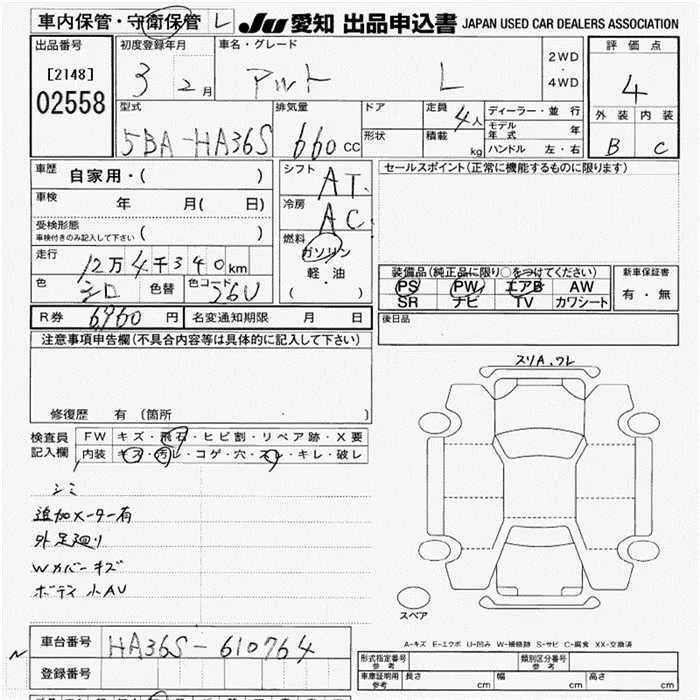 車内保管・守衛保管 L JU 愛知 出品申込書 JAPAN USED CAR DEALERS ASSOCIATION
出品番号 [2148] 02558
初度登録年月 3 2月
車名・グレード アルト L
2WD・4WD
評価点 4
外装 内装
B C
型式 5BA-HA36S
排気量 660cc
ドア
形状
定員 4人
積載 kg
ディーラー・並行
モデル年式 年
ハンドル 左・右
車歴 自家用・( )
車検 年 月( 日)
受検形態 ( )
車検付きのみ記入して下さい
走行 12万4千340km
色 シロ 色替 色コード 26U
シフト AT.
冷房 AC.
燃料 ガソリン
軽・油
( )
セールスポイント(正常に機能するものに限ります)
装備品(純正品に限り○をつけてください)
PS PW エアB AW
SR ナビ TV カワシート
新車保証書
有・無
R券 6960円 名変通知期限 月 日
後日品
注意事項申告欄(不具合内容等は具体的に記入して下さい)
修復歴 有(箇所 )
検査員記入欄
FW キズ・飛石・ヒビ割・リペア跡・X要
内装 キズ・汚レ・コゲ・穴・スレ・キレ・破レ
シミ
追加メーター有
外足廻り
Wカバーキズ
ボディ小AU
スリA、ワレ
スペア
A-キズ E-エクボ U-凹み W-補修跡 S-サビ C-腐食 XX-交換済
車台番号 HA36S-610764
登録番号
形式指定番号 参考
類別区分番号 参考
車庫証明用 参考 長さ cm 幅 cm 高さ cm